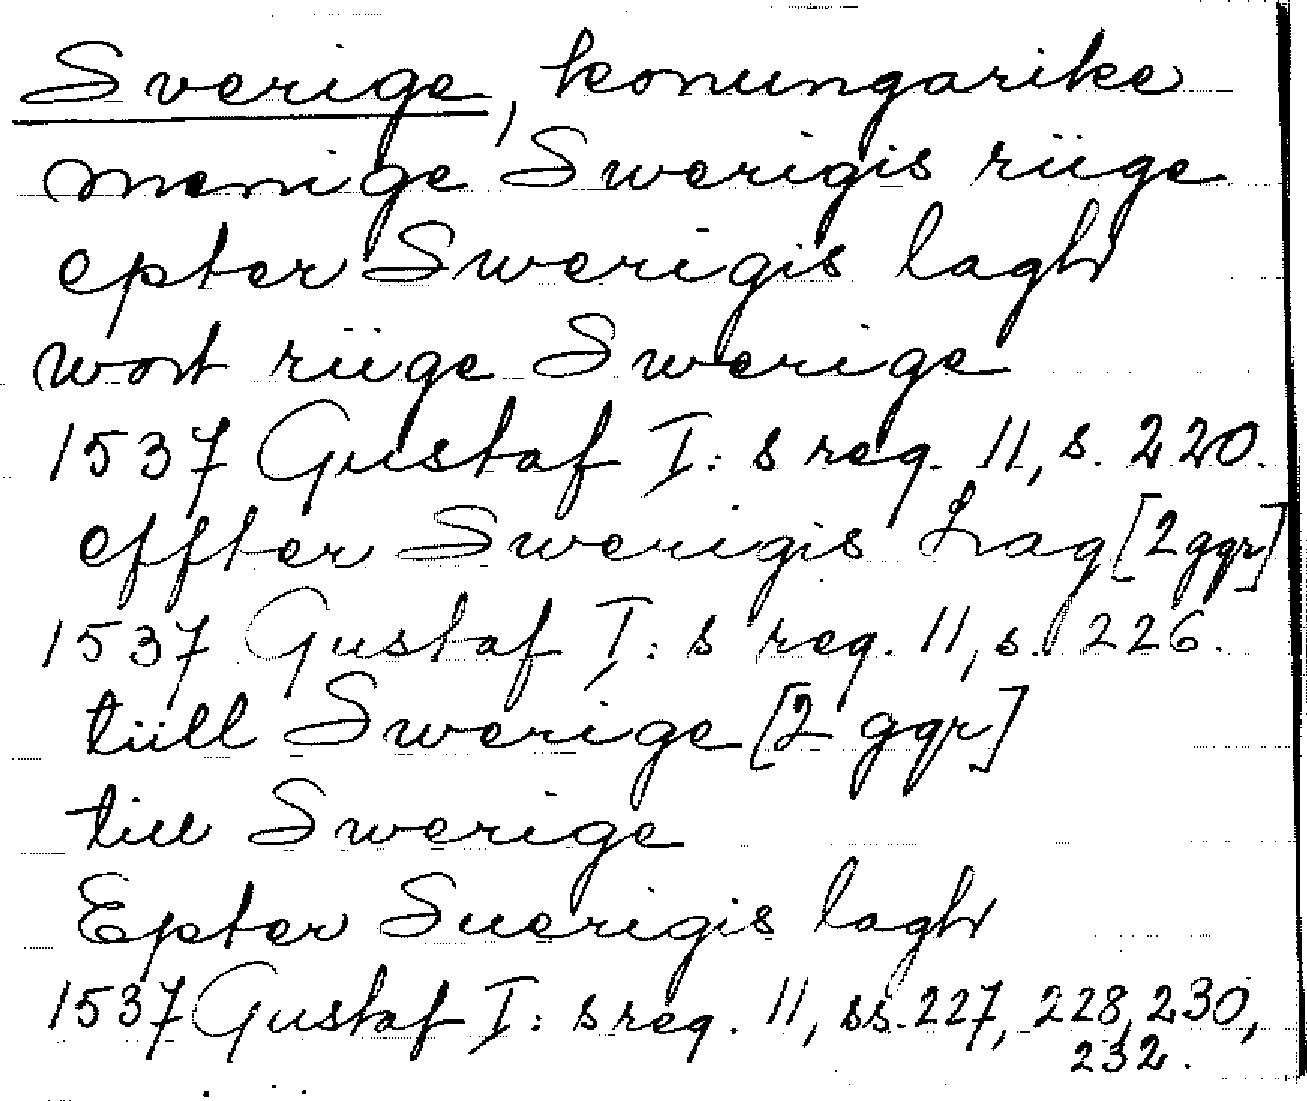 Sverige, konungarike
menige Swerigis riige
epter Swerigis lagh
wort riige Swerige
1537 Gustaf I:s reg. 11, s. 220.
effter Swerigis Lag [2 ggr]
1537 Gustaf I:s reg. 11, s. 226.
tiill Swerige [2 ggr]
till Swerige
Epter Suerigis lagh
1537 Gustaf I:s reg. 11, ss. 227, 228, 230,
232.